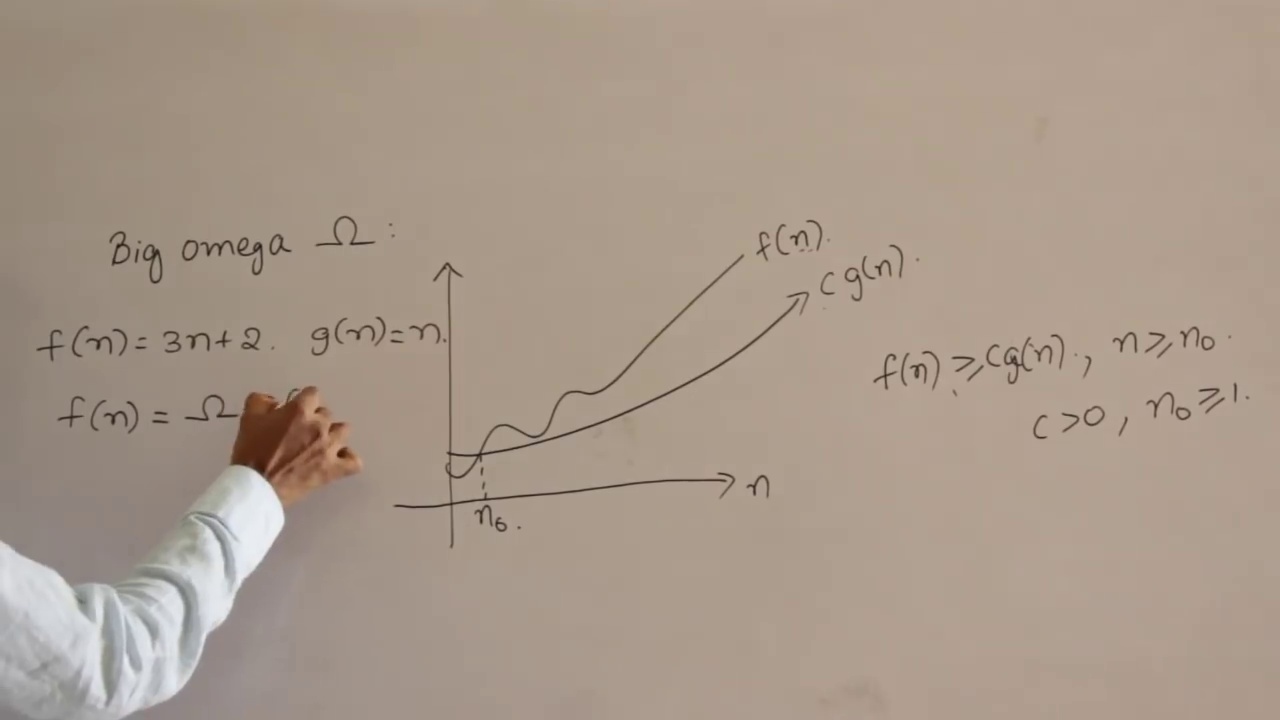 Big omega Ω :
f(n) = 3n+2. g(n) = n.
f(n) = Ω
f(n).
c g(n).
n
n₀.
f(n) ≥ cg(n)., n ≥ n₀.
c > 0, n₀ ≥ 1.